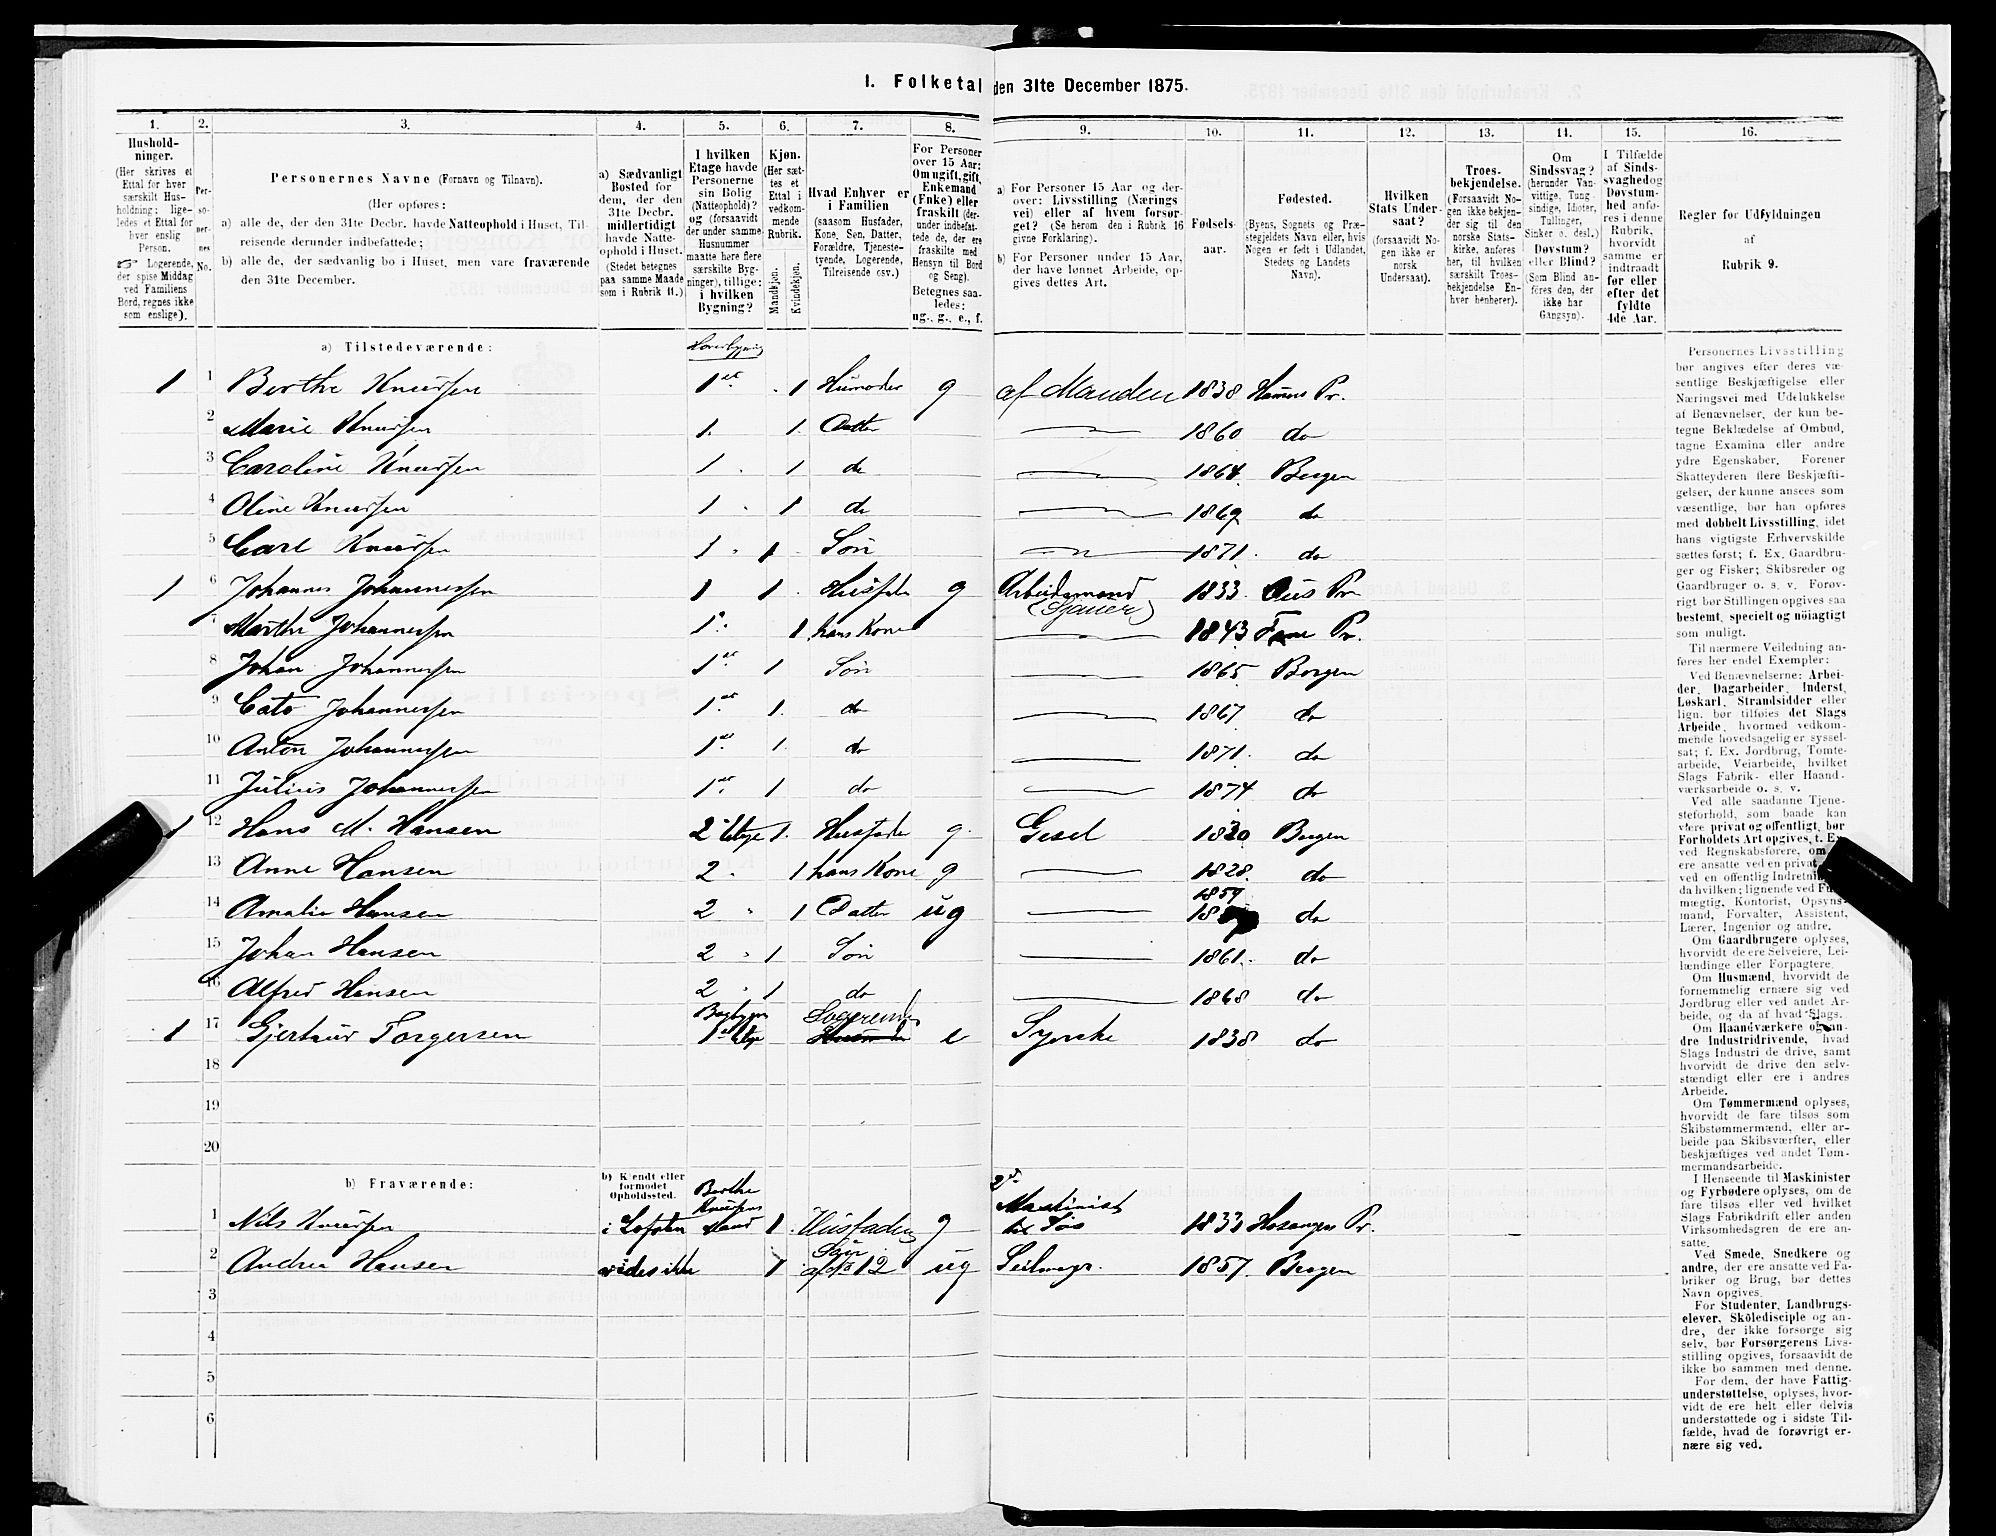 1. Folketal den 31te December 1875.
1. 2. 3. 4. 5. 6. 7. 8. 9. 10. 11. 12. 13. 14. 15. 16.
Hushold-
ninger.
(Her skrives et
Ettal for hver
særskilt Hus-
holdning; lige-
ledes et Ettal for
hver enslig
Person.
☞ Logerende,
der spise Middag
ved Familiens
Bord, regnes ikke
som enslige).
Per-
so-
ner-
nes
No.
Personernes Navne (Fornavn og Tilnavn).
(Her opføres:
a) alle de, der den 31te Decbr. havde Natteophold i Huset, Til-
reisende derunder indbefattede;
b) alle de, der sædvanlig bo i Huset, men vare fraværende
den 31te December.
a) Sædvanligt
Bosted for
dem, der den
31te Decbr.
midlertidigt
havde Natte-
ophold i Huset.
(Stedet betegnes
paa samme Maade
som i Rubrik 11.)
I hvilken
Etage havde
Personerne
sin Bolig
(Natteophold)?
og (forsaavidt
der under samme
Husnummer
maatte høre flere
særskilte Byg-
ninger), tillige:
i hvilken
Bygning?
Kjøn.
(Her sæt-
tes et
Ettal i
vedkom-
mende
Rubrik.
Mandkjøn.
Kvindekjøn.
Hvad Enhver er
i Familien
(saasom Husfader,
Kone, Søn, Datter,
Forældre, Tjeneste-
tyende, Logerende,
Tilreisende osv.)
For Personer
over 15 Aar;
Om ugift, gift,
Enkemand
(Enke) eller
fraskilt (der-
under indbefat-
tede de, der ere
fraskilte med
Hensyn til Bord
og Seng).
Betegnes saa-
ledes:
ug., g., e., f.
a) For Personer 15 Aar og der-
over: Livsstilling (Nærings
vei) eller af hvem forsør-
get? (Se herom den i Rubrik 16
givne Forklaring).
b) For Personer under 15 Aar,
der have lønnet Arbeide, op-
gives dettes Art.
Fødsels-
aar.
Fødested.
(Byens, Sognets og Præ-
stegjeldets Navn eller, hvis
Nogen er født i Udlandet,
Stedets og Landets
Navn).
Hvilken
Stats Under-
saat?
(forsaavidt No-
gen ikke er
norsk
Undersaat).
Troes-
bekjendelse.
(Forsaavidt No-
gen ikke bekjen-
der sig til den
norske Stats-
kirke, anføres
her, til hvilken
særskilt Troes-
bekjendelse En-
hver henhører).
Om
Sindssvag?
(herunder Van-
vittige, Tung
sindige, Idioter,
Tullinger,
Sinker o. desl.)
Døvstum?
eller Blind?
(Som Blind an-
føres den, der
ikke har
Gangsyn).
I Tilfælde
af Sinds-
svaghed og
Døvstum-
hed anfø-
res i denne
Rubrik,
hvorvidt
samme er
indtraadt
før eller
efter det
fyldte
4de Aar.
Regler for Udfyldningen
af
Rubrik 9.
a) Tilstedeværende:
1 1 Berthe Knudsen 1 et. 1 Husmoder g af Manden 1838 Hammers Pr.
2 Marie Knudsen 1. 1. Datter 1860 do
3 Caroline Knudsen 1 1 do 1864 Bergen
4 Oline Knudsen 1 1 do 1869 do
5 Carl Knudsen 1 1 Søn 1871 do
1 6 Johannes Johannessen 1 1 Husfader g Arbeidsmand 1833 Ous Pr
(Sjauer)
7 Marthe Johannessen 1 1 hans Kone 1843 Fane Pr.
8 Johan Johannessen 1 et 1 Søn 1865 Bergen
9 Cato Johannessen 1 et 1. do 1867 do
10 Anton Johannessen 1 et 1. do 1871. do
11 Julius Johannessen 1 et 1 do 1874 do
1 12 Hans M. Hansen 2 Etage 1. Husfader g. Gesel 1830 Bergen
13 Anne Hansen 2 1 hans Kone g 1828. do
1859
14 Amalie Hansen 2 1 Datter ug do
15 Johan Hansen 2 1 Søn 1861. do
16 Alfred Hansen 2 1 do 1868 do
1 17 Gjertrud Torgersen 1 Etage e Syerske 1838 do
18
19
20
b) Fraværende:
b) Kjendt eller
formodet
Opholdssted.
Berthe
Knudsens
Mand
1 Nils Knudsen i Lofoten 1 Husfader g 2den Maskinist
til Søs 1833 Hosangers Pr.
2 Andrea Hansen vides ikke 1 Søn af No 12 ug Seilmagr. 1857. Bergen
3
4
5
6
Personernes Livsstilling
bør angives efter deres væ-
sentlige Beskjæftigelse eller
Næringsvei med Udelukkelse
af Benævnelser, der kun be-
tegne Beklædelse af Ombud,
tagne Examina eller andre
ydre Egenskaber. Forener
Skatteyderen flere Beskjæfti-
gelser, der kunne ansees som
væsentlige, bør han opføres
med dobbelt Livsstilling, idet
hans vigtigste Erhvervskilde
sættes først; f. Ex. Gaardbru-
ger og Fisker; Skibsreder og
Gaardbruger o. s. v. Forøv-
rigt bør Stillingen opgives saa
bestemt, specielt og nöiagtigt
som muligt.
Til nærmere Veiledning an-
føres her endel Exempler:
Ved Benævnelserne: Arbei-
der, Dagarbeider, Inderst,
Løskarl, Strandsidder eller
lign. bør tilføies det Slags
Arbeide, hvormed vedkom-
mende hovedsagelig er syssel-
sat; f. Ex. Jordbrug, Tomte-
arbeide, Veiarbeide, hvilket
Slags Fabrik- eller Haand-
værksarbeide o. s. v.
Ved alle saadanne Tjene-
steforhold, som baade kan
være privat og offentligt, bør
Forholdets Art opgives, t. Ex.
ved Regnskabsførere, om
ere ansatte ved en privat
ved en offentlig Indretning
da hvilken; lignende ved Fuld-
mægtig, Kontorist, Opsyns-
mand, Forvalter, Assistent,
Lærer, Ingeniør og andre.
Om Gaardbrugere oplyses,
hvorvidt de ere Selveiere, Lei-
lændinge eller Forpagtere.
Om Husmænd, hvorvidt de
fornemmelig ernære sig ved
Jordbrug eller ved andet Ar-
beide, og da af hvad Slags.
Om Haandværkere og an-
dre Industridrivende, hvad
Slags Industri de drive, samt
hvorvidt de drive den selv-
stændigt eller ere i andres
Arbeide.
Om Tømmermænd oplyses,
hvorvidt de fare tilsøs som
Skibstømmermænd, eller ar-
beide paa Skibsværfter, eller
beskjæftiges ved andet Tøm-
mermandsarbeide.
I Henseende til Maskinister
og Fyrbødere oplyses, om de
fare tilsøs eller ved hvilket
Slags Fabrikdrift eller anden
Virksomhedsgren de ere an-
satte.
Ved Smede, Snedkere og
andre, der ere ansatte ved Fa-
briker og Brug, bør dettes
Navn opgives.
For Studenter, Landbrugs-
elever, Skoledisciple og an-
dre, der ikke forsørge sig
selv, bør Forsørgerens Livs-
stilling opgives, forsaavidt de
ikke bo sammen med denne.
For dem, der have Fattig-
understøttelse, oplyses, hvor-
vidt de ere helt eller delvis
understøttede og i sidste Til-
fælde, hvad de forøvrigt er-
nære sig ved.